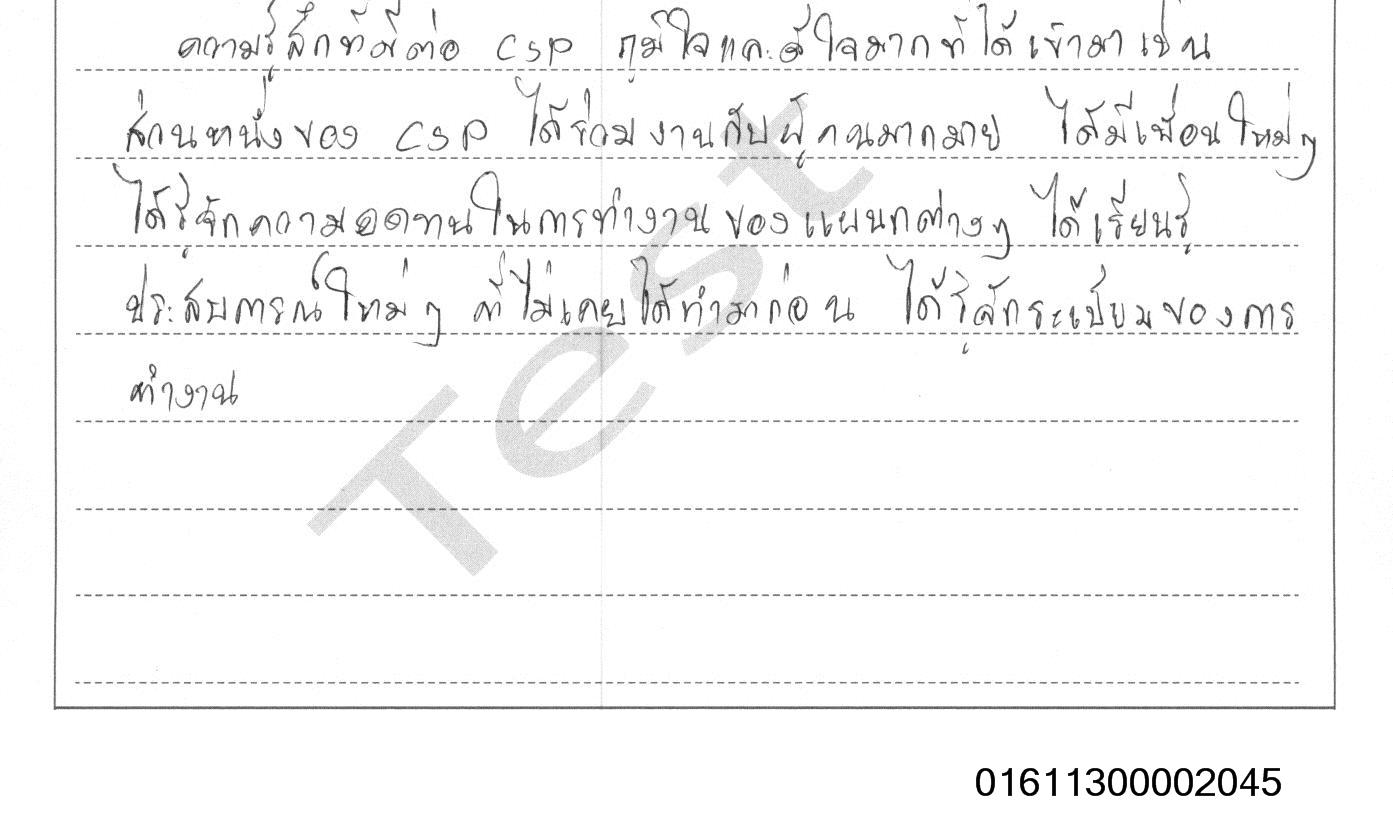 ความรู้สึกที่มีต่อ CSP ภูมิใจและดีใจมากที่ได้เข้ามาเป็น
ส่วนหนึ่งของ CSP ได้ร่วมงานกับผู้คนมากมาย ได้มีเพื่อนใหม่ๆ
ได้รู้จักความอดทนในการทำงานของแผนกต่างๆ ได้เรียนรู้
ประสบการณ์ใหม่ๆ ที่ไม่เคยได้ทำมาก่อน ได้รู้จักระเบียบของการ
ทำงาน
Test
01611300002045